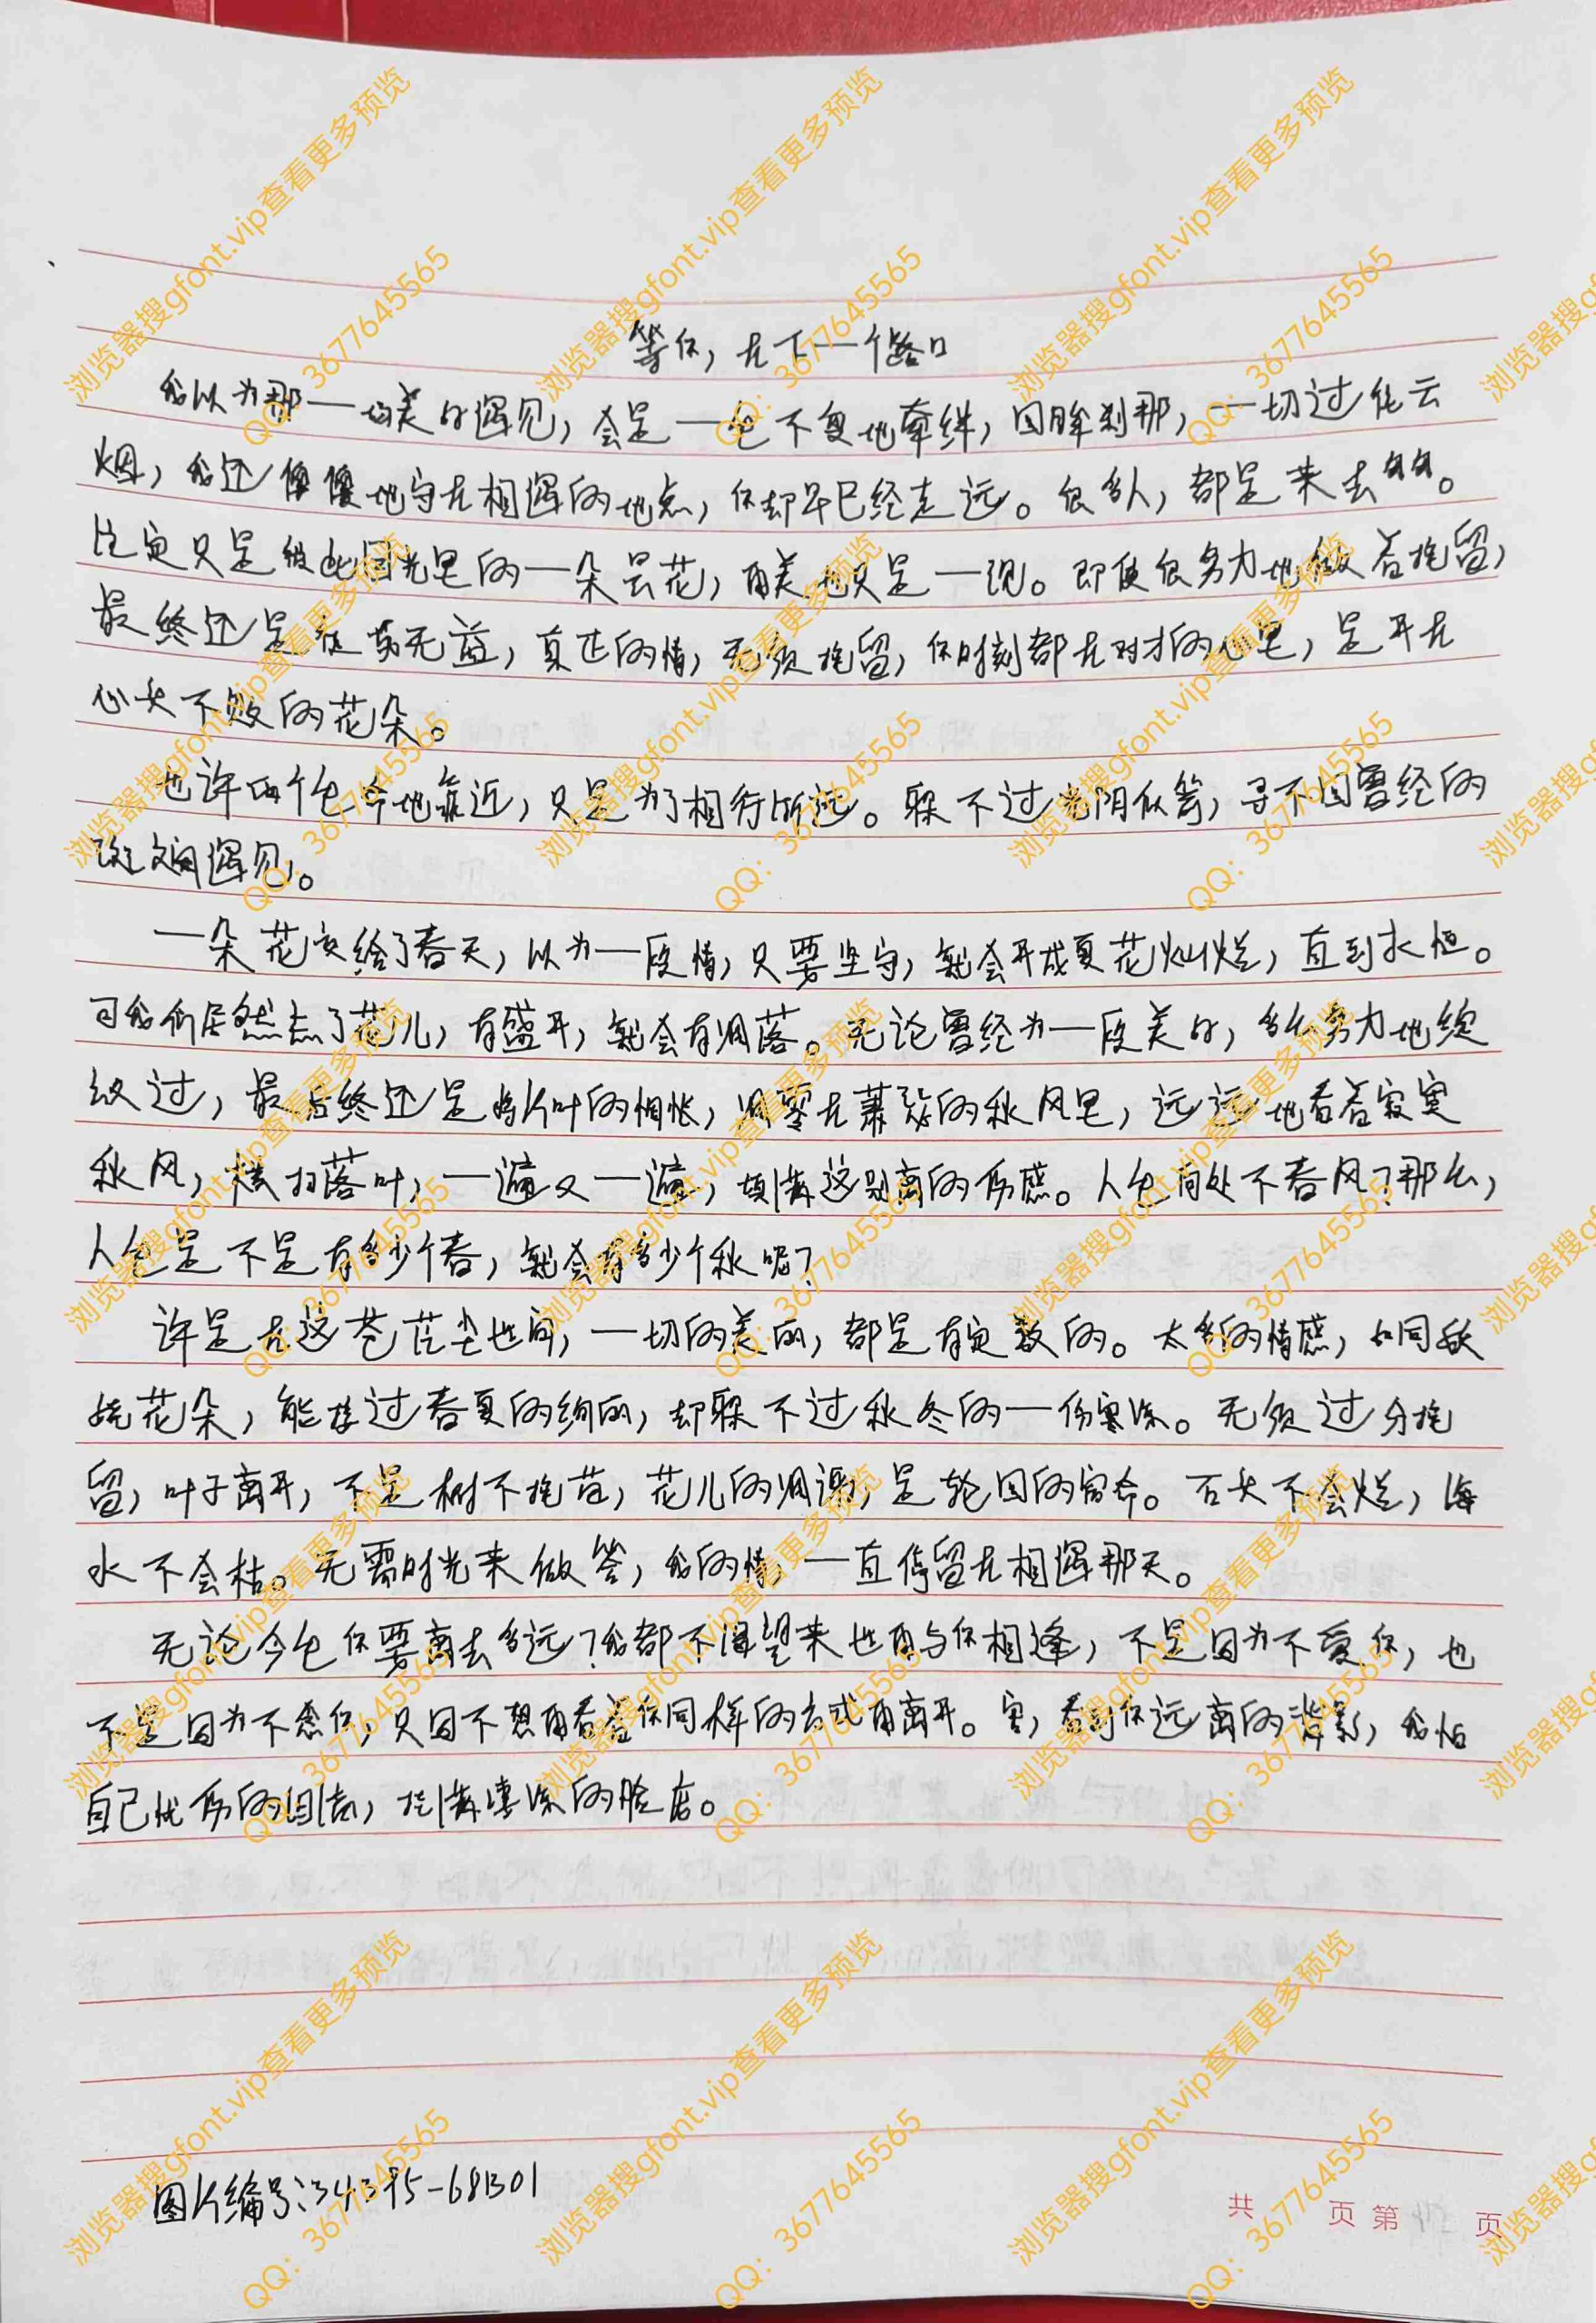 等你，在下一个路口
我以为那一场美好遇见，会是一生不复地牵绊，回眸刹那，一切过化云
烟，我还傻傻地守在相遇的地点，你却早已经走远。很多人，都是来去匆匆。
注定只是彼此时光里的一朵昙花，再美也只是一现。即使很努力地做着挽留，
最终还是徒劳无益，真正的情，无须挽留，你时刻都在对方的心里，是开在
心头不败的花朵。
也许两个生命地靠近，只是为了相行渐远。躲不过光阴似箭，寻不回曾经的
斑斓遇见。
一朵花交给了春天，以为一段情，只要坚守，就会开成夏花灿烂，直到永恒。
可我们居然忘了花儿，有盛开，就会有凋落。无论曾经为一段美好，多么努力地绽
放过，最后终还是将片叶的惆怅，凋零在萧瑟的秋风里，远远地看着寂寞
秋风，横扫落叶，一遍又一遍，填满这别离的伤感。人生何处不春风？那么，
人生是不是有多少个春，就会有多少个秋呢？
许是在这苍茫尘世间，一切的美丽，都是有定数的。太多的情感，如同妖
娆花朵，能挨过春夏的绚丽，却躲不过秋冬的一伤寒凉。无须过分挽
留，叶子离开，不是树不挽留，花儿的凋谢，是轮回的宿命。石头不会烂，海
水不会枯。无需时光来做答，我的情，一直停留在相遇那天。
无论今生你要离去多远？我都不渴望来世再与你相逢，不是因为不爱你，也
不是因为不念你，只因不想再看着你同样的方式再离开。害，看到你远离的背影，我怕
自己忧伤的泪滴，挂满凄凉的脸店。
图片编号：34395-681301
共 页 第 页
浏览器搜gfont.vip查看更多预览
QQ：3677645565